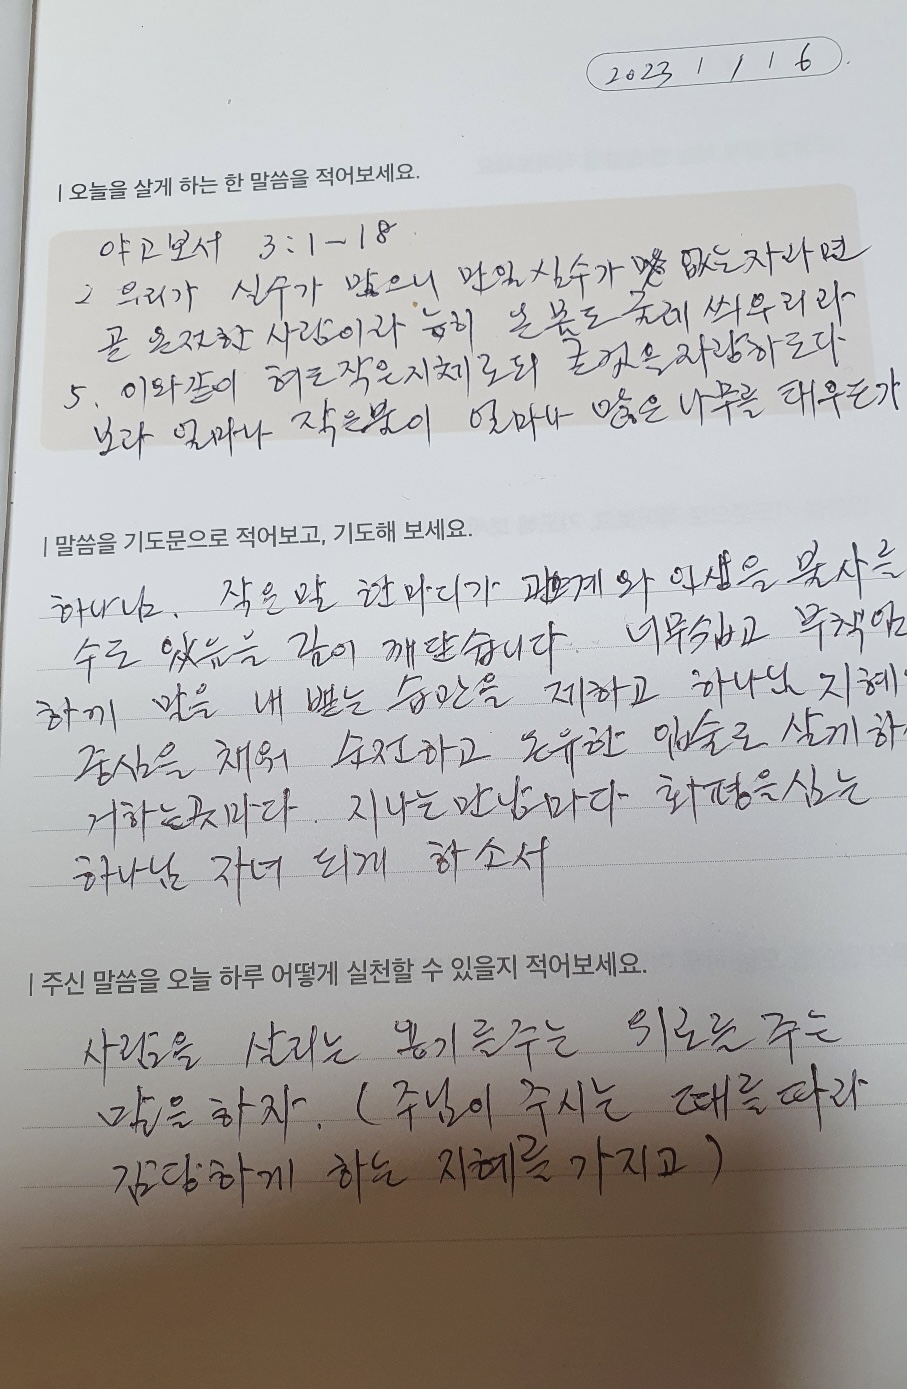 2023 / 1 / 16
| 오늘을 살게 하는 한 말씀을 적어보세요.
야고보서 3:1-18
2 우리가 실수가 많으니 만일 실수가 없는자라면
곧 온전한 사람이라 능히 온 몸도 굴레 씌우리라
5. 이와같이 혀도작은지체로되 큰것을자랑하도다
보라 얼마나 작은불이 얼마나 많은나무를 태우는가
| 말씀을 기도문으로 적어보고, 기도해 보세요.
하나님. 작은말 한마디가 관계와 인생을 불사를
수도 있음을 깊이 깨닫습니다. 너무쉽고 무책임
하게 말을 내 뱉는 습관을 제하고 하나님 지혜
중심을 채워 순전하고 온유한 입술로 살게하
거하는곳마다. 지나는만남마다 화평을심는
하나님 자녀 되게 하소서
| 주신 말씀을 오늘 하루 어떻게 실천할 수 있을지 적어보세요.
사람을 살리는 용기를주는 위로를주는
말을하자. (주님이 주시는 때를따라
감당하게 하는 지혜를가지고)